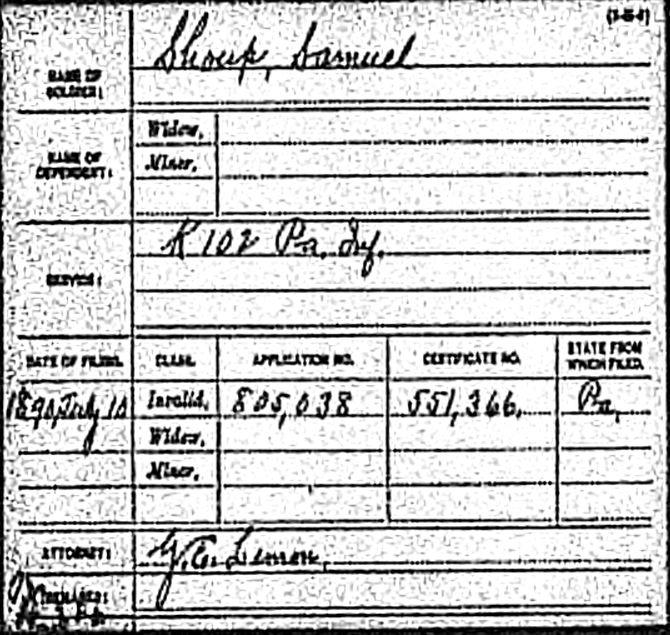 (3-5-1)
Shoup, Samuel
NAME OF
SOLDIER:
NAME OF
DEPENDENT:
Widow,
Minor,
K 102 Pa. Inf.
SERVICE:
DATE OF FILING. CLASS. APPLICATION NO. CERTIFICATE NO. STATE FROM
WHICH FILED.
1890, July 10 Invalid, 805,038 551,366. Pa.
Widow,
Minor,
ATTORNEY: Lemon.
REMARKS: